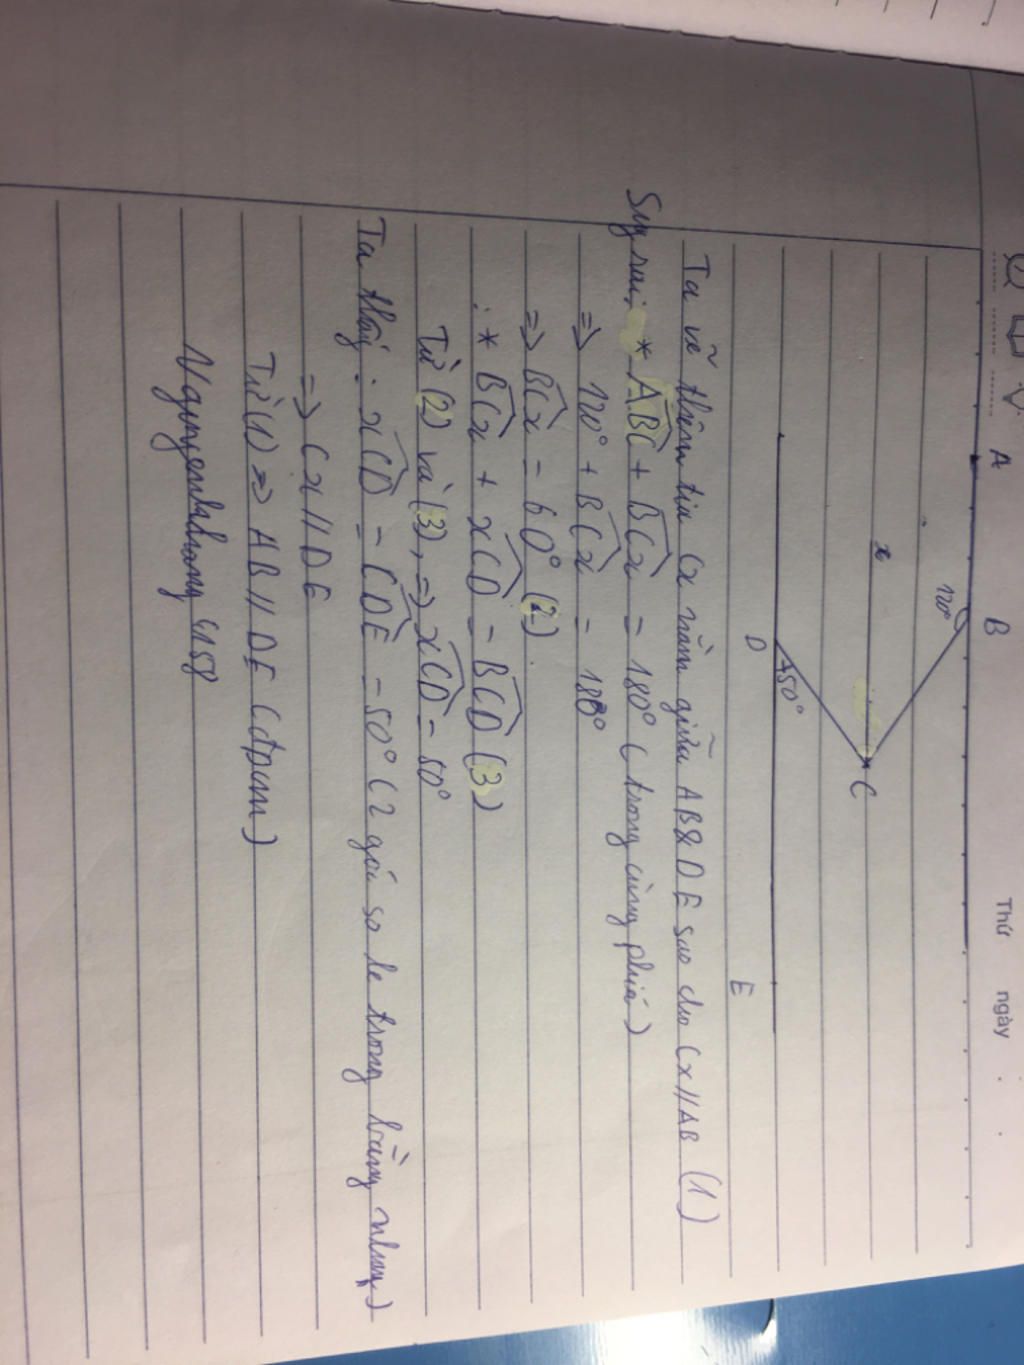 Thứ ngày
A B
120°
x
C
50°
D E
Ta vẽ thêm tia Cx nằm giữa AB & DE sao cho Cx // AB (1)
Suy ra: * ABC + BCx = 180° (trong cùng phía)
=> 120° + BCx = 180°
=> BCx = 60° (2)
* BCx + xCD = BCD (3)
Từ (2) và (3), => xCD = 50°
Ta thấy: xCD = CDE = 50° (2 góc so le trong bằng nhau)
=> Cx // DE
Từ (1) => AB // DE (đpcm)